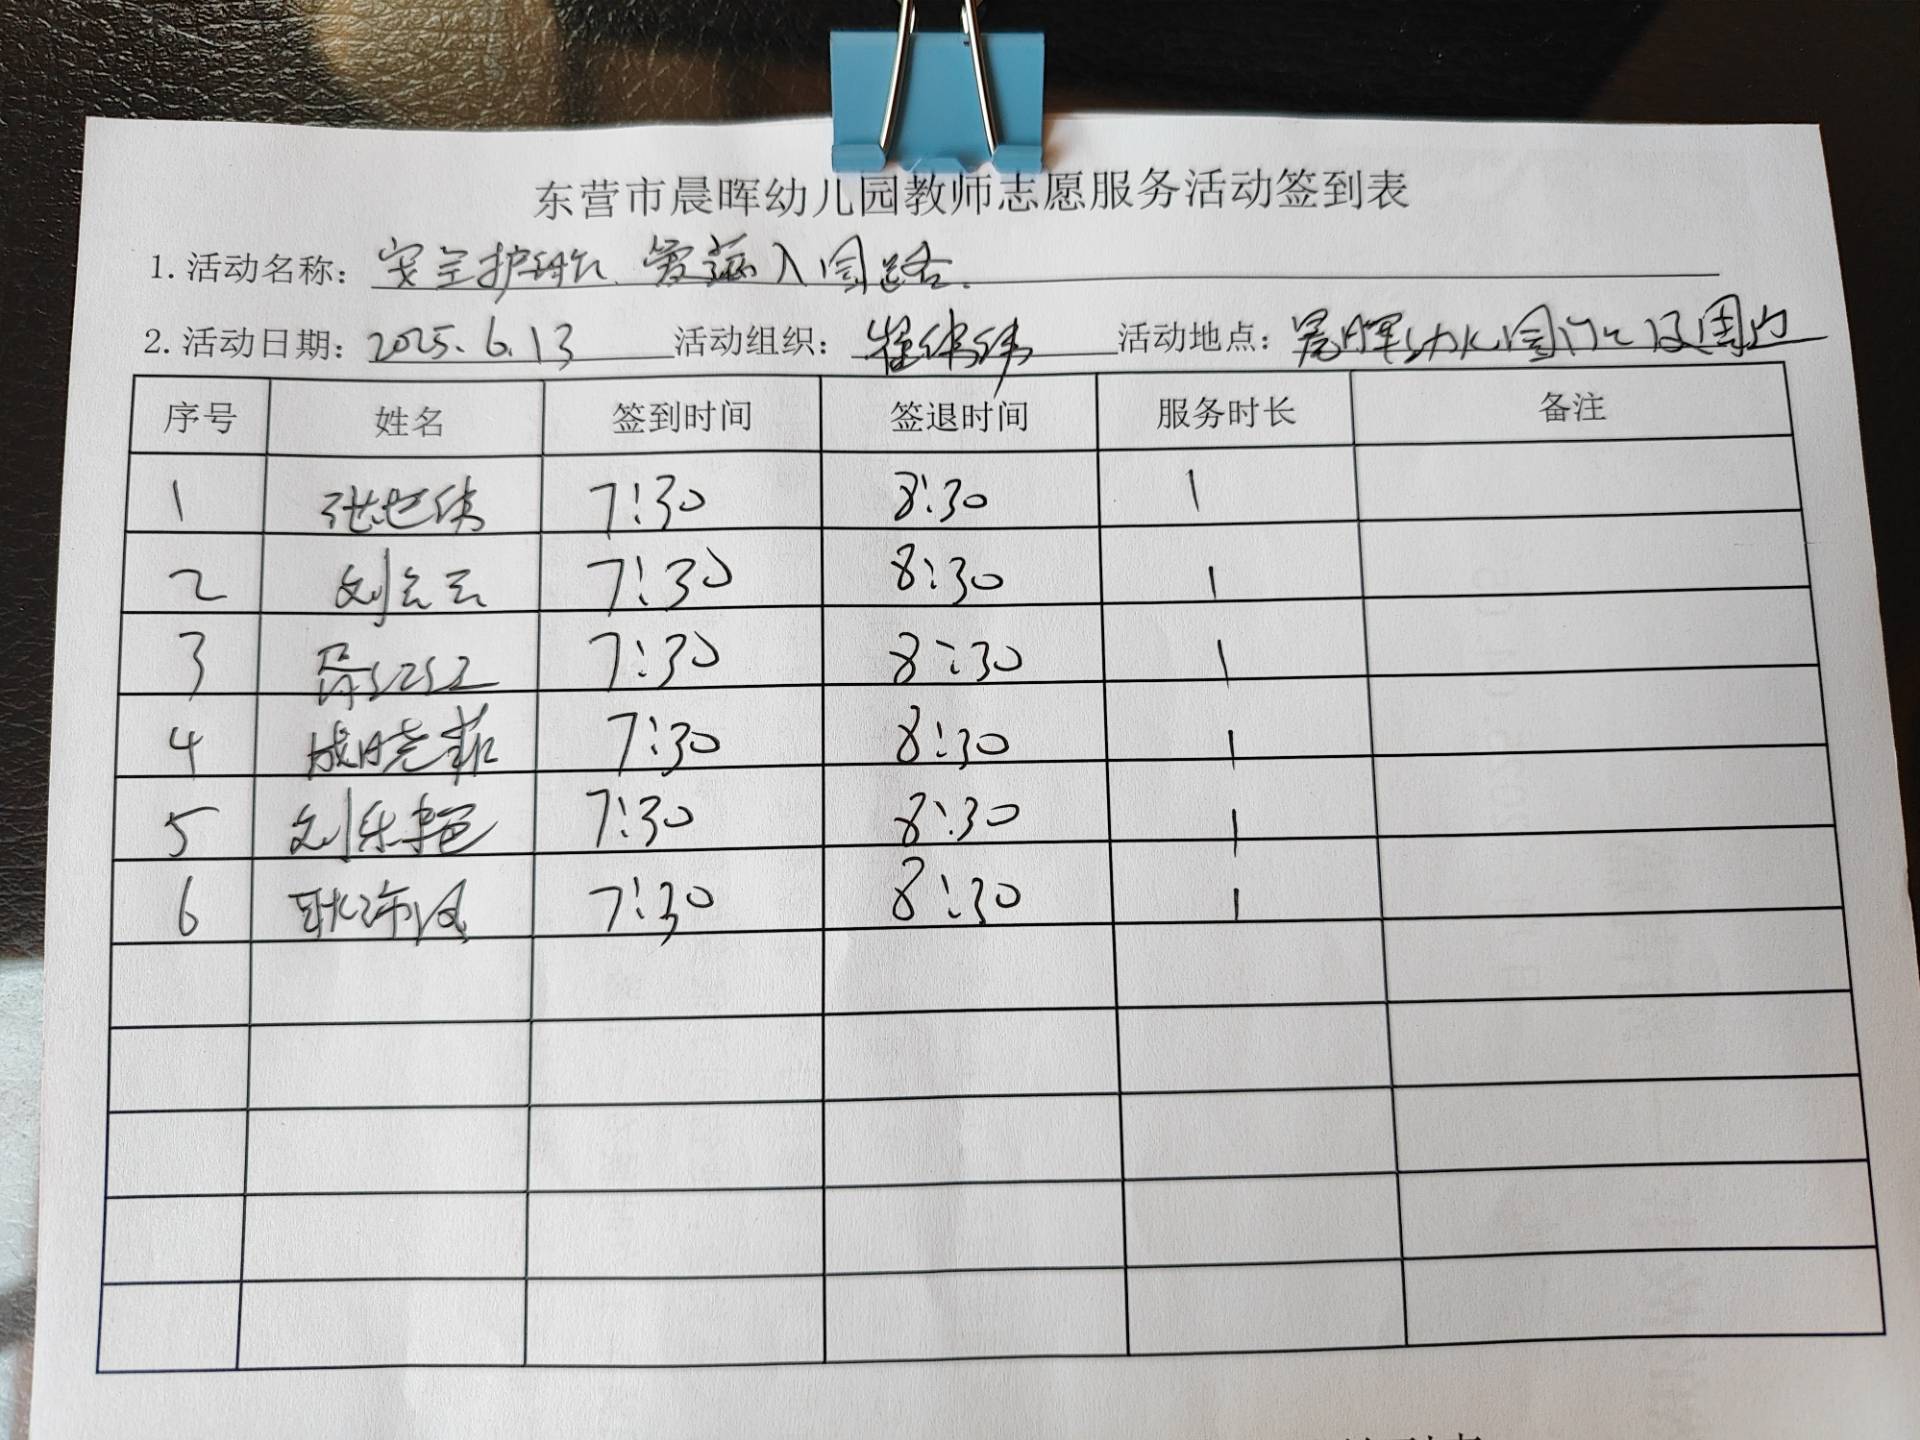 东营市晨晖幼儿园教师志愿服务活动签到表
1.活动名称：安全护航 爱在入园路.
2.活动日期：2025.6.13 活动组织：崔伟伟 活动地点：晨晖幼儿园门口及周边
序号 姓名 签到时间 签退时间 服务时长 备注
1 张艳伟 7:30 8:30 1
2 刘云云 7:30 8:30 1
3 7:30 8:30 1
4 成晓菲 7:30 8:30 1
5 刘乐艳 7:30 8:30 1
6 7:30 8:30 1